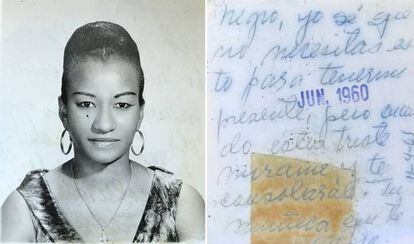 negro, yo sé que
no necesitas es
to para tenerm
JUN. 1960
presente, pero cuan
do estes triste
mirame, y te
consolarás. Tu
muñeca que te